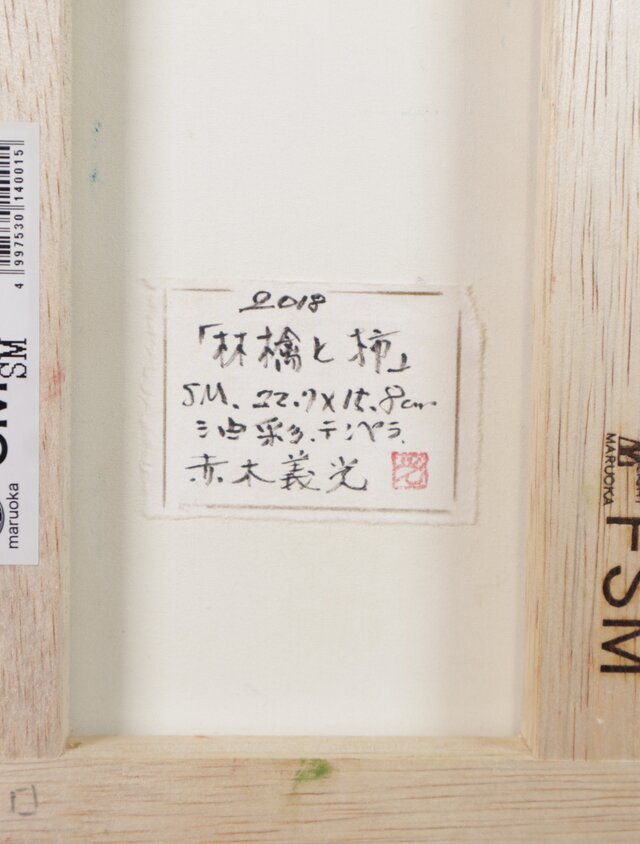 2018
「林檎と柿」
SM. 22.7×15.8cm
油彩.テンペラ.
赤木義光
4 997530 140015
SM
maruoka
MARUOKA
FSM